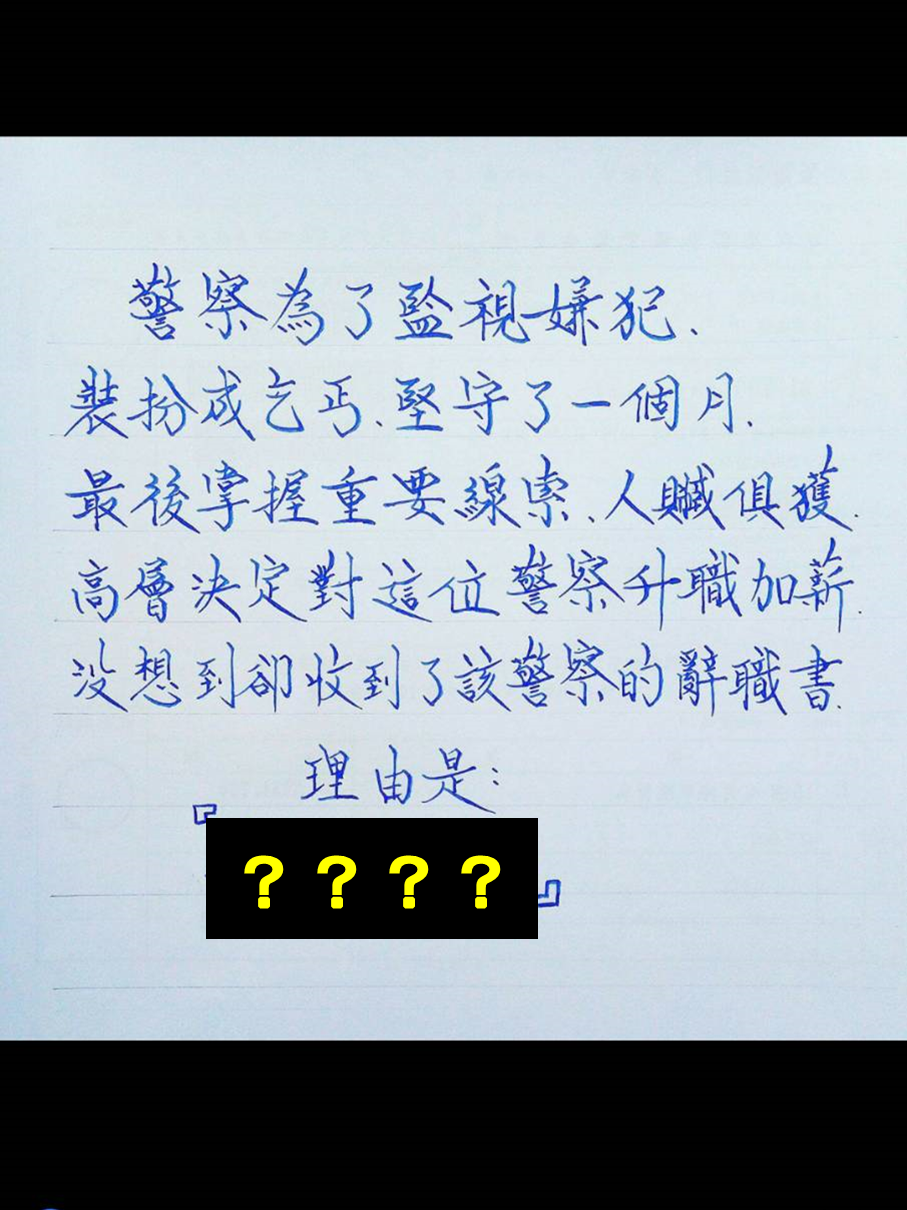 警察為了監視嫌犯.
裝扮成乞丐.堅守了一個月.
最後掌握重要線索.人贓俱獲.
高層決定對這位警察升職加薪.
沒想到卻收到了該警察的辭職書.
理由是:
『????』